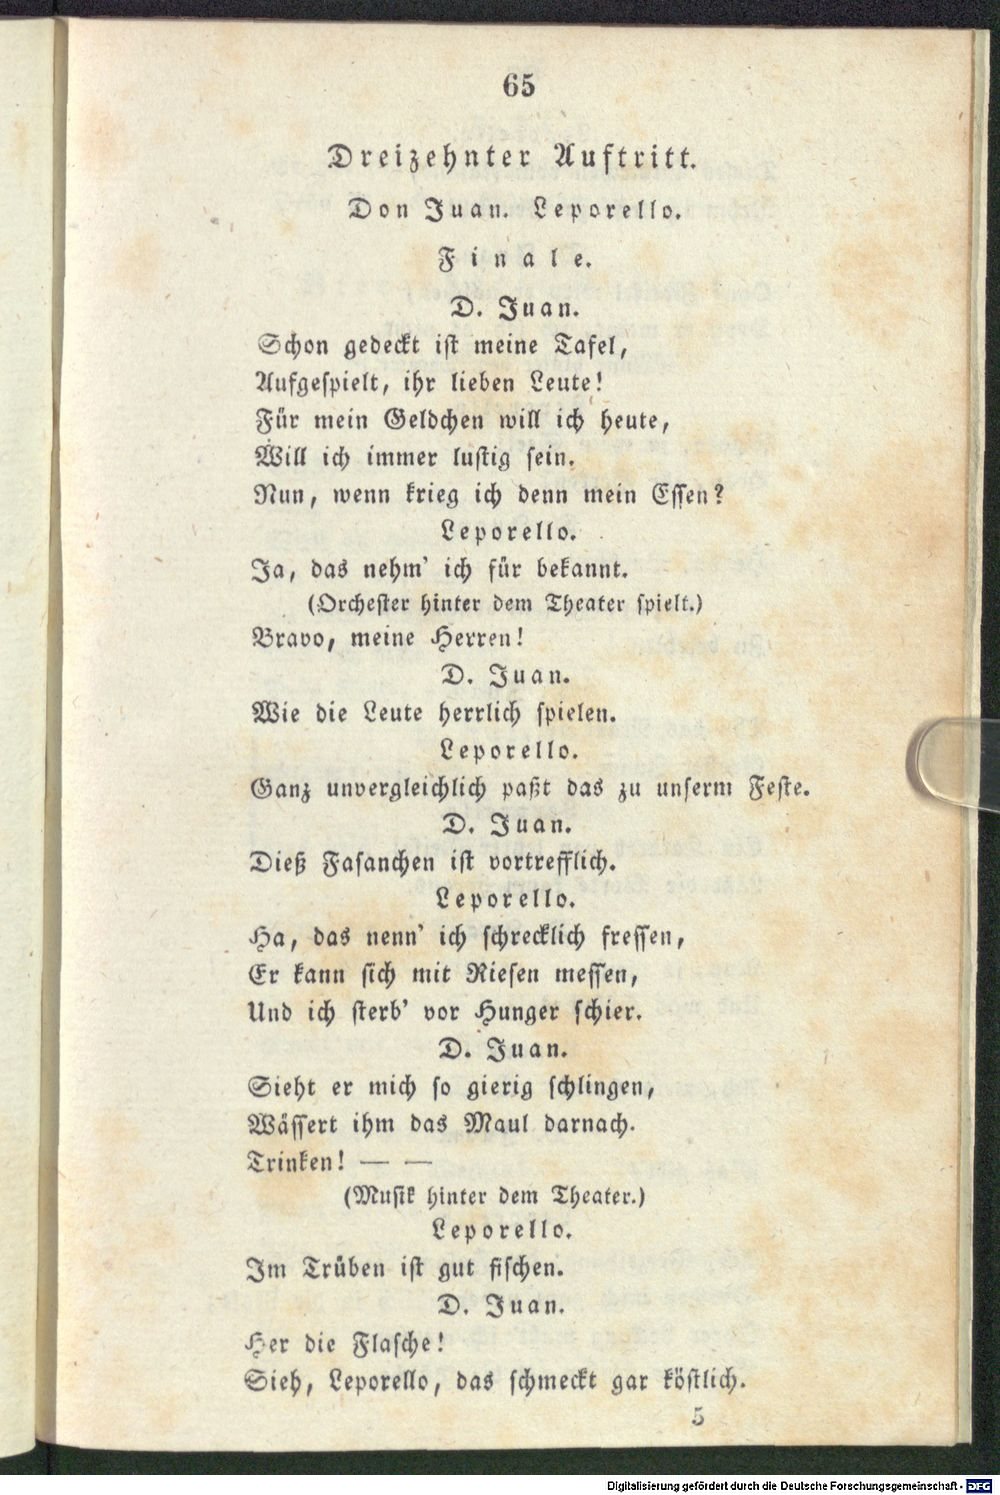 65
Dreizehnter Auftritt.
Don Juan. Leporello.
Finale.
D. Juan.
Schon gedeckt ist meine Tafel,
Aufgespielt, ihr lieben Leute!
Für mein Geldchen will ich heute,
Will ich immer lustig sein.
Nun, wenn krieg ich denn mein Essen?
Leporello.
Ja, das nehm' ich für bekannt.
(Orchester hinter dem Theater spielt.)
Bravo, meine Herren!
D. Juan.
Wie die Leute herrlich spielen.
Leporello.
Ganz unvergleichlich paßt das zu unserm Feste.
D. Juan.
Dieß Fasanchen ist vortrefflich.
Leporello.
Ha, das nenn' ich schrecklich fressen,
Er kann sich mit Riesen messen,
Und ich sterb' vor Hunger schier.
D. Juan.
Sieht er mich so gierig schlingen,
Wässert ihm das Maul darnach.
Trinken! — —
(Musik hinter dem Theater.)
Leporello.
Im Trüben ist gut fischen.
D. Juan.
Her die Flasche!
Sieh, Leporello, das schmeckt gar köstlich.
5
Digitalisierung gefördert durch die Deutsche Forschungsgemeinschaft - DFG